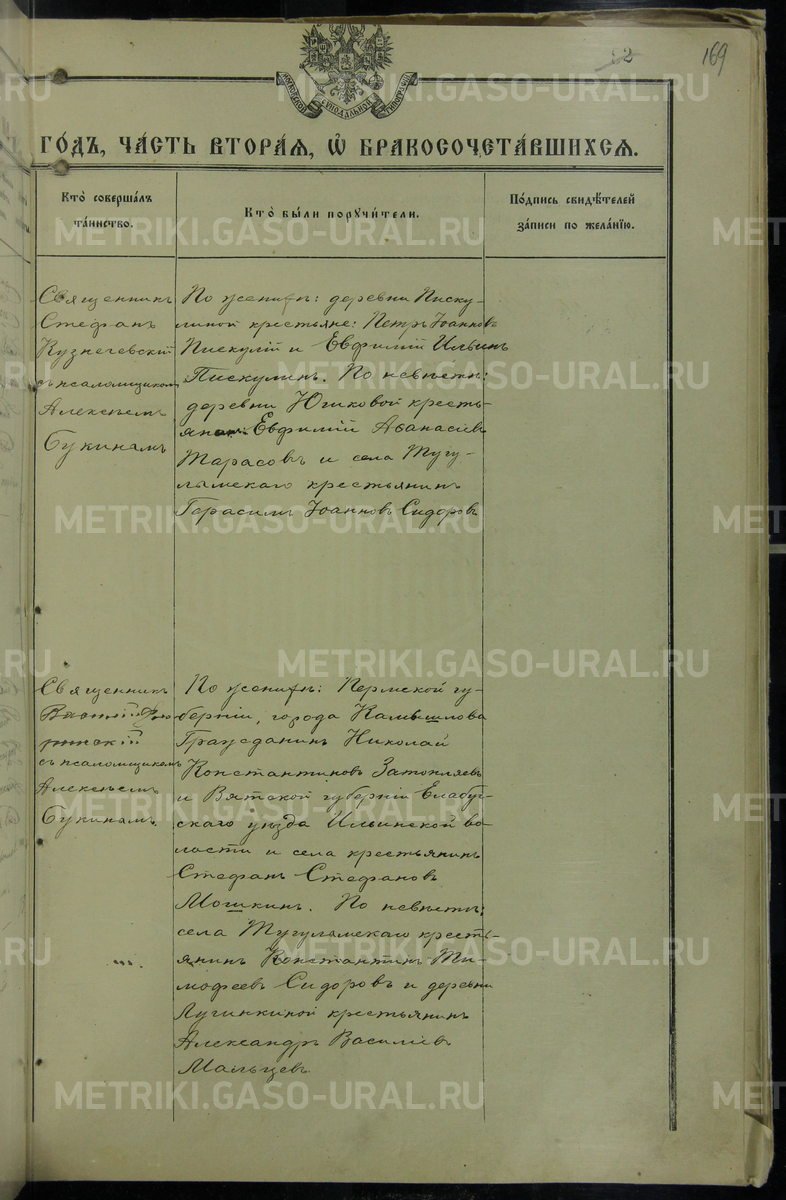 169
ГО́ДЪ, ЧА́СТЬ ВТОРА́Я, Ѡ҆ БРАКОСОЧЕТА́ВШИХСЯ.
Кто̀ соверша́лъ
та́инство.
Кто̀ бы́ли порꙋчи́тели.
По́дпись свидѣ́телей
за́писи по жела́нїю.
Священникъ
Стефанъ
Кузнечевскій
съ псаломщикомъ
Алексѣемъ
Букинымъ
По женихѣ: деревни Писку-
линой крестьяне: Петръ Іоанновъ
Пискулин и Евфимій Ильинъ
Пискулинъ. По невѣстѣ:
деревни Юшковой кресть-
янинъ Евфимій Аѳанасіевъ
Тарасовъ и села Тугу-
лымскаго крестьянинъ
Герасимъ Іоанновъ Сидоровъ
Священникъ
съ псаломщикомъ
Алексѣемъ
Букинымъ.
По женихѣ: Пермской гу-
берніи, города Камышлова
Гражданинъ Николай
Константиновъ Затопляевъ
и Вятской губерніи Елабуг-
скаго уѣзда Ильинской во-
лости и села крестьянинъ
Стефанъ Стефановъ
Мошкинъ. По невѣстѣ:
села Тугулымскаго кресть-
янинъ Константинъ Ти-
мофеевъ Сидоровъ и деревни
Лучинкиной крестьянинъ
Александръ Василіевъ
Мальцевъ
METRIKI.GASO-URAL.RU